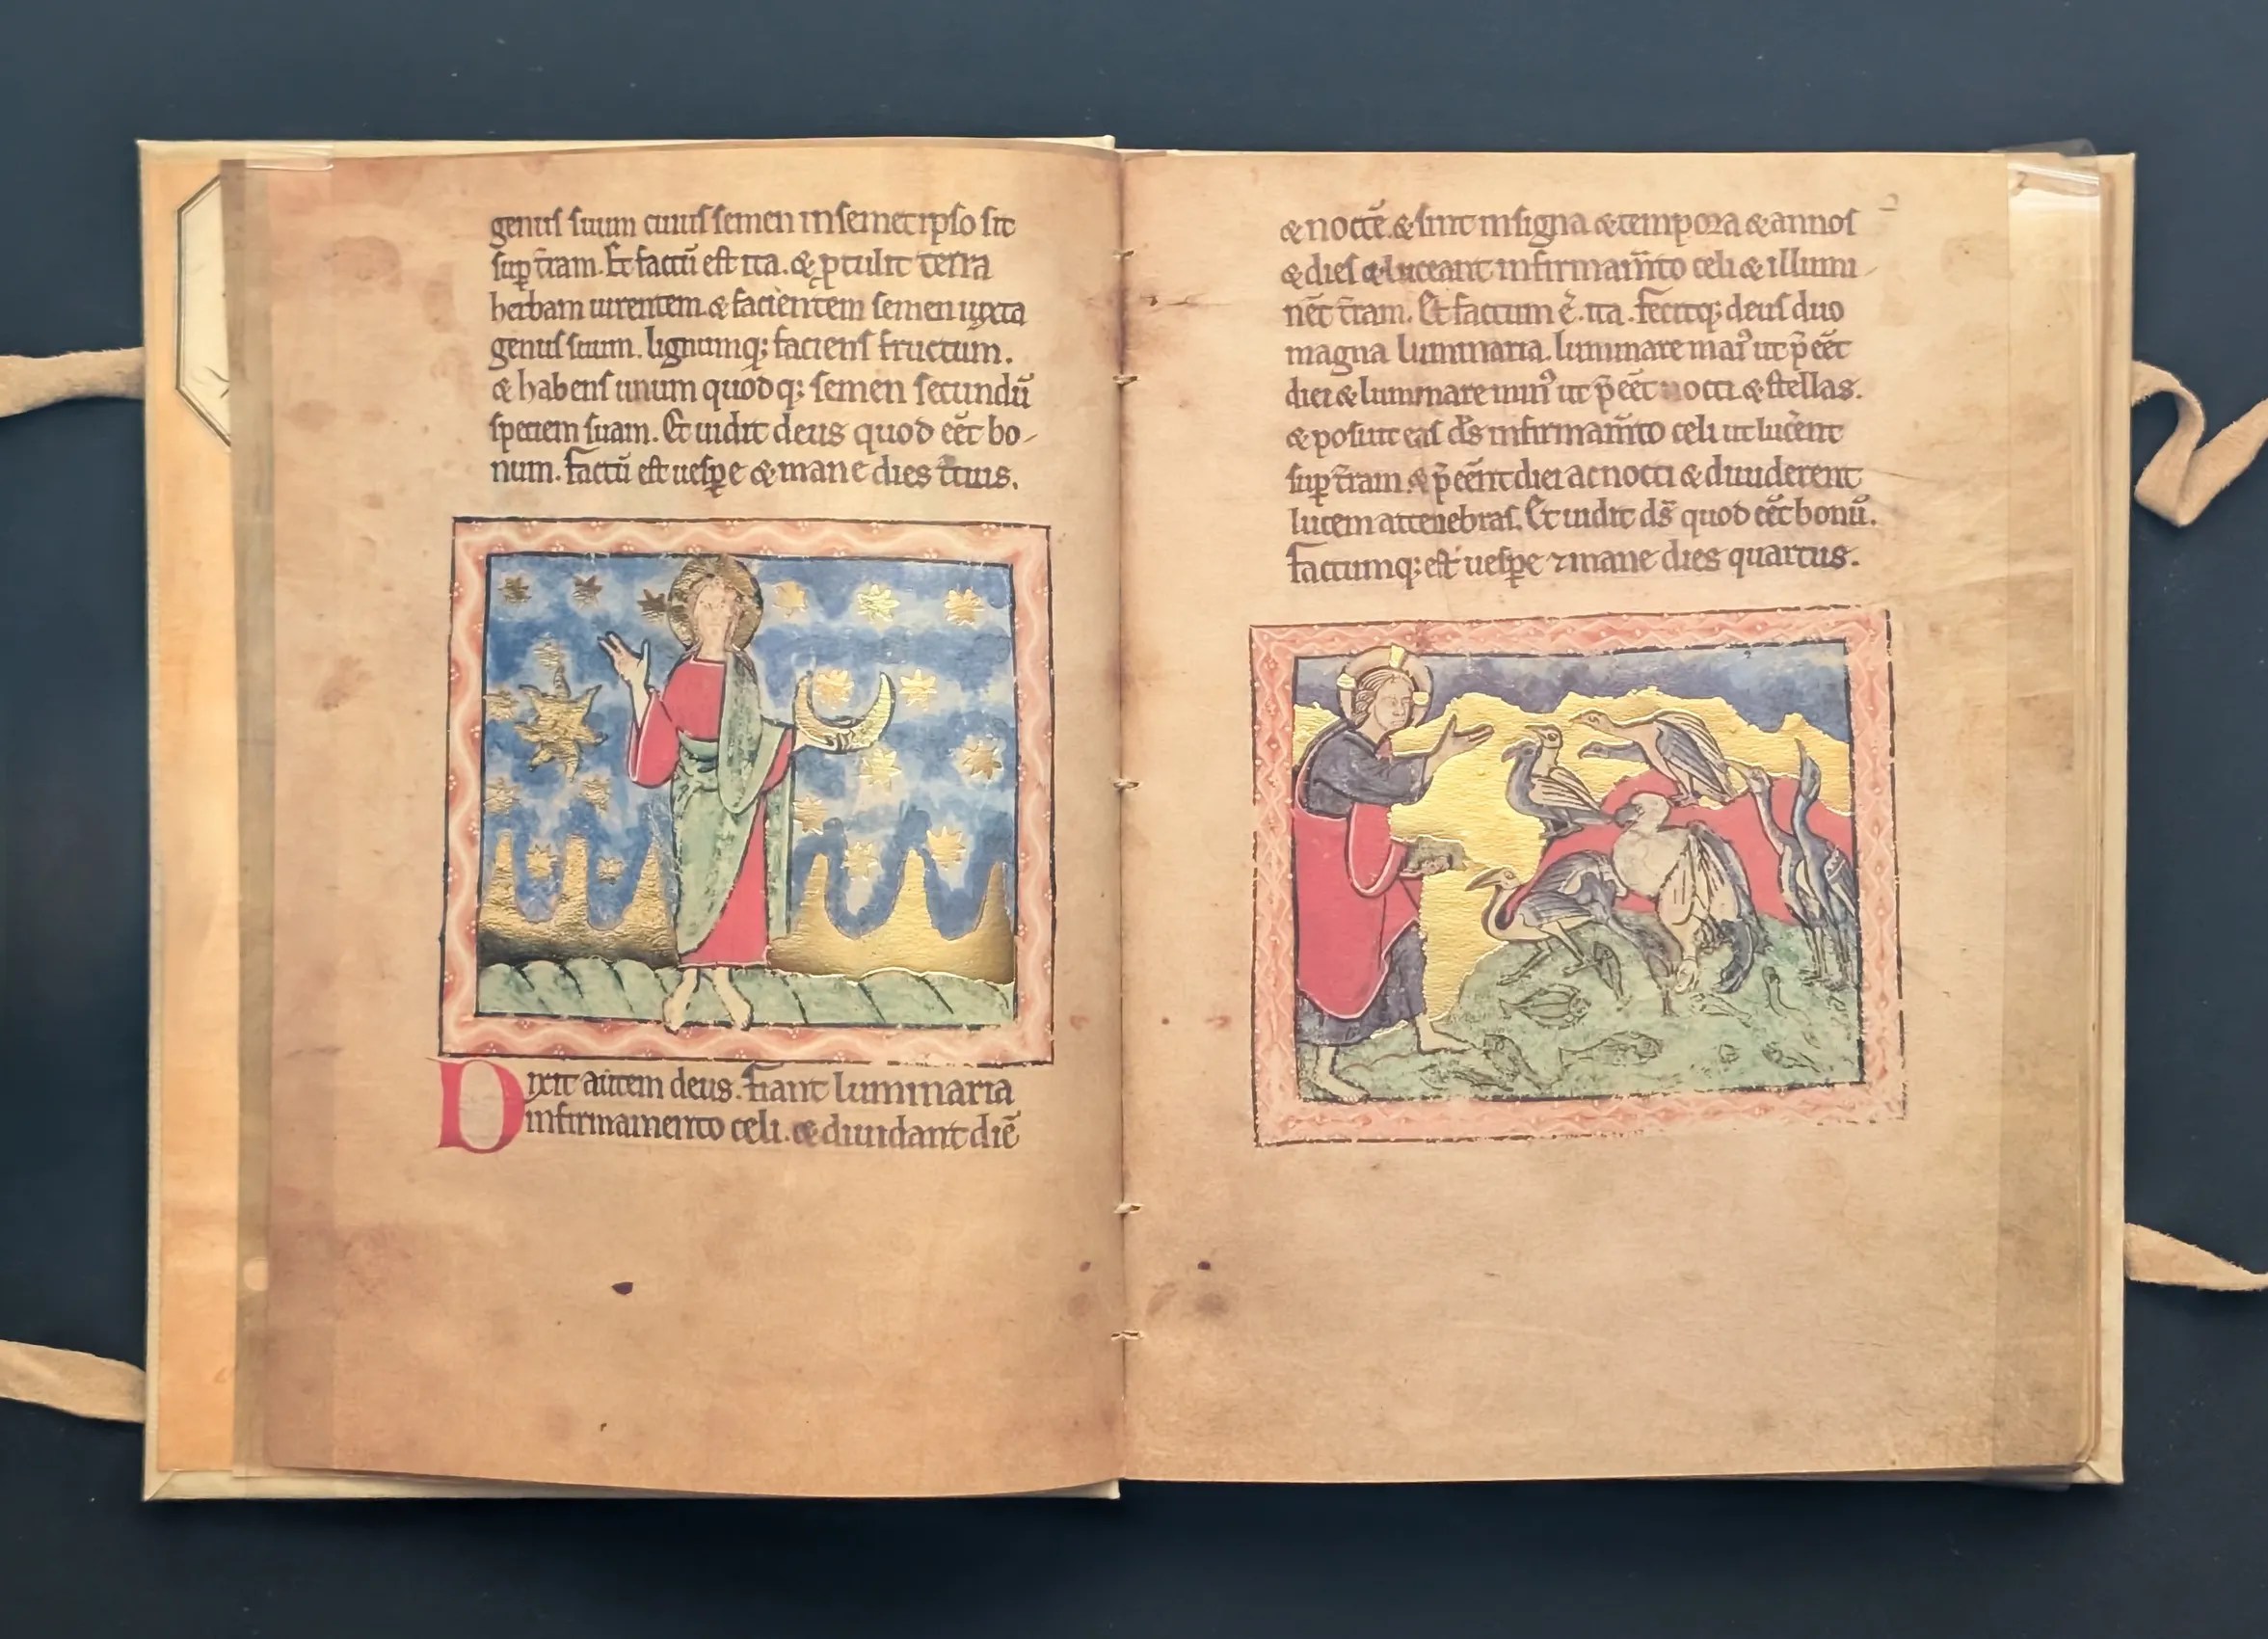 genuſ ſuum cuiuſ ſemen inſemet ipſo ſit
ſuꝑ t̄ram. Et factū eſt ita. & ꝓtulit terra
herbam uirentem & facientem ſemen iuxta
genuſ ſuum. lignumq; facienſ fructum.
& habenſ unum quodq; ſemen ſecundū
ſpeciem ſuam. Et uidit deus quod eēt bo-
num. Factū eſt ueſꝑe & mane dies t̄cius.
Dixit autem deus. Fiant luminaria
infirmamento celi. & diuidant diē
2
& noctē. & ſint inſigna & tempora & annoſ
& dieſ & luceant infirmam̄to celi & illumi-
nēt t̄ram. Et factum ē. ita. Fecitq; deuſ duo
magna luminaria. luminare maiꝰ ut p̄eēt
diei & luminare minꝰ ut p̄eēt nocti & ſtellas.
& poſuit eaſ d̄s infirmam̄to celi ut lucērt
ſuꝑ t̄ram. & p̄eēnt diei ac nocti & diuiderent
lucem ac tenebraſ. Et uidit d̄s quod eēt bonū.
Factumq; eſt ueſꝑe ⁊ mane dies quartus.